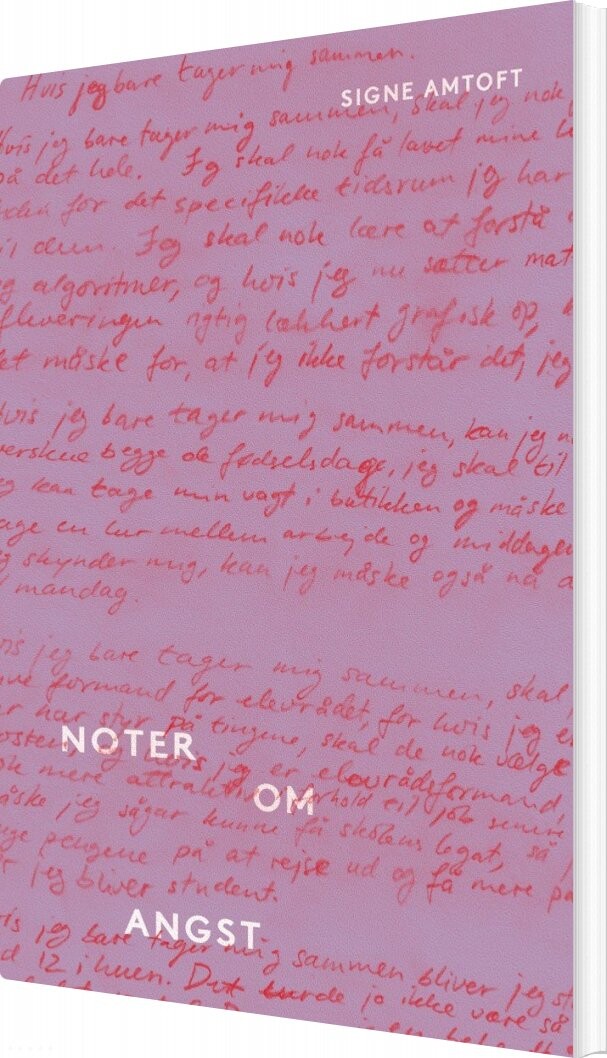 Hvis jeg bare tager mig sammen.
SIGNE AMTOFT
Hvis jeg bare tager mig sammen, skal jeg nok
på det hele. Jeg skal nok få lavet mine
inden for det specifikke tidsrum jeg har
til dem. Jeg skal nok lære at forstå
og algoritmer, og hvis jeg nu sætter mat
afleveringen rigtig lækkert grafisk op, k
det måske for, at jeg ikke forstår det, jeg
Hvis jeg bare tager mig sammen, kan jeg n
overskue begge de fødselsdage, jeg skal til
jeg kan tage min vagt i butikken og måske
tage en lur mellem arbejde og middagen
jeg skynder mig, kan jeg måske også nå a
mandag.
Hvis jeg bare tager mig sammen, skal
formand for elevrådet, for hvis jeg e
har styr på tingene, skal de nok vælge
NOTER
hvis jeg er elevrådsformand,
nok mere attraktiv i forhold til job senere
OM
måske jeg sågar kunne få skolens legat, så
bruge pengene på at rejse ud og få mere pa
når jeg bliver student.
ANGST
Hvis jeg bare tager mig sammen bliver jeg st
12 i huen. Det burde jo ikke være så